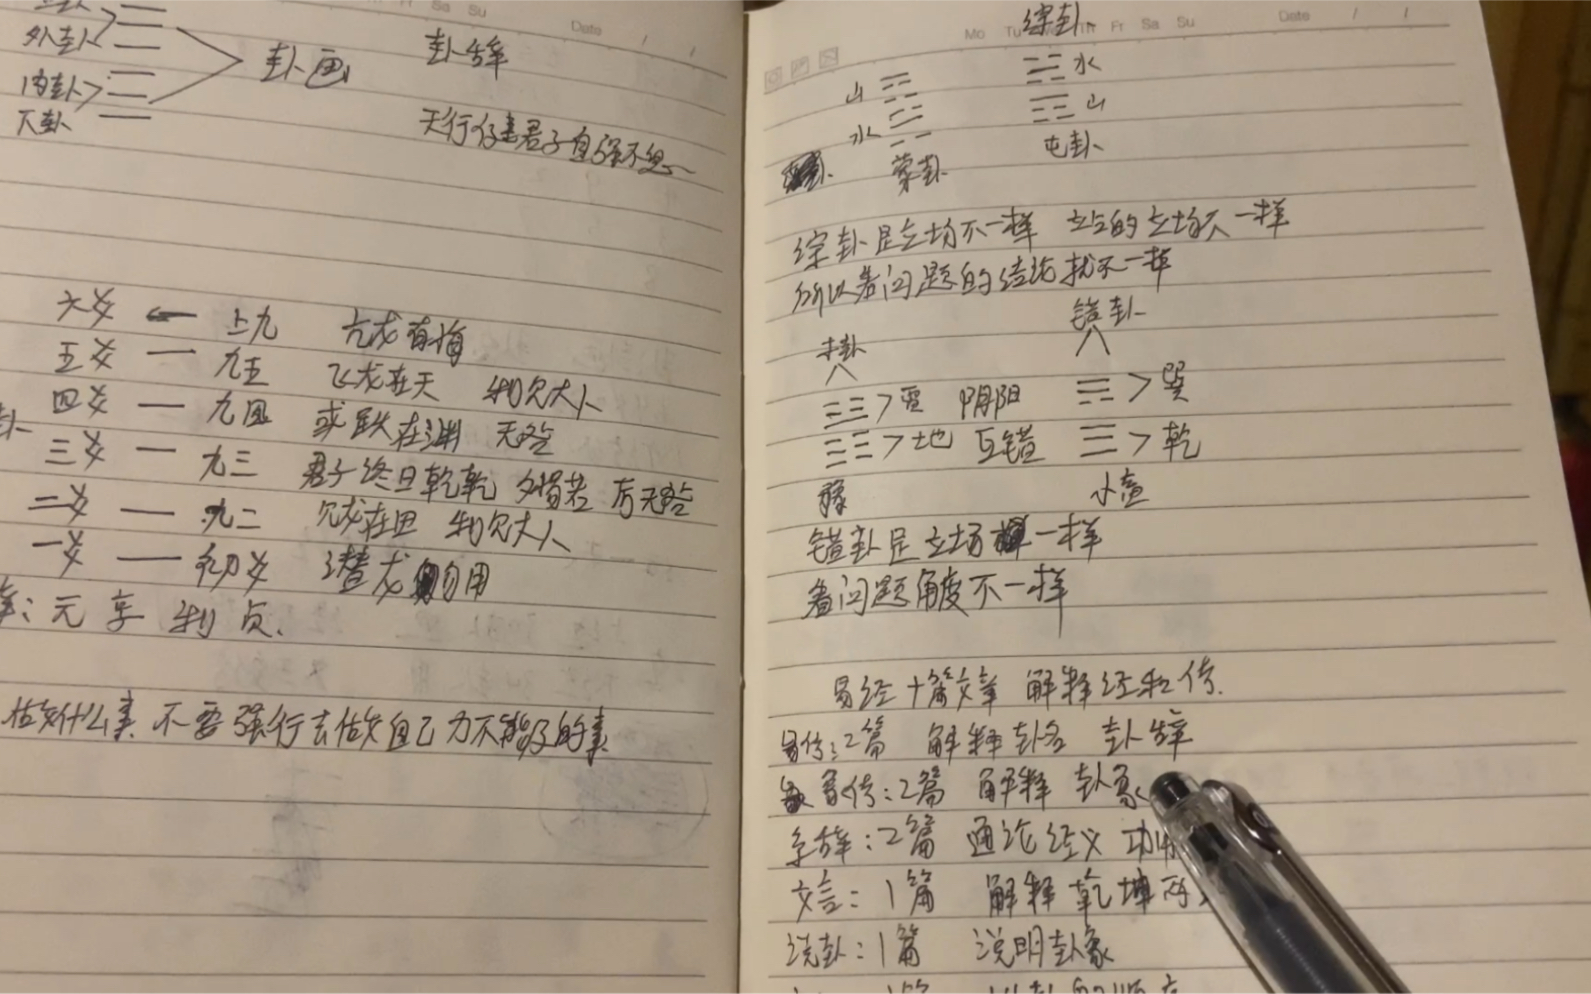 外卦
内卦
下卦
卦画
卦辞
天行健君子自强不息
六爻 上九 亢龙有悔
五爻 九五 飞龙在天 利见大人
四爻 九四 或跃在渊 无咎
三爻 九三 君子终日乾乾 夕惕若 厉无咎
二爻 九二 见龙在田 利见大人
一爻 初爻 潜龙勿用
辞:元 亨 利 贞.
做什么事 不要强行去做自己力不能及的事
Sa Su
Date / /
Mo Tu Th Fr Sa Su
Date / /
综卦
山 水
水 山
蒙卦 屯卦
综卦是立场不一样 站的立场不一样
所以看问题的结论就不一样
本卦 错卦
雷 阴阳 巽
地 互错 乾
豫 小畜
错卦是立场一样
看问题角度不一样
易经十篇文章 解释经和传.
传:2篇 解释卦名 卦辞
象传:2篇 解释 卦象
系辞:2篇 通论经义 功
文言:1篇 解释乾坤两
说卦:1篇 说明卦象